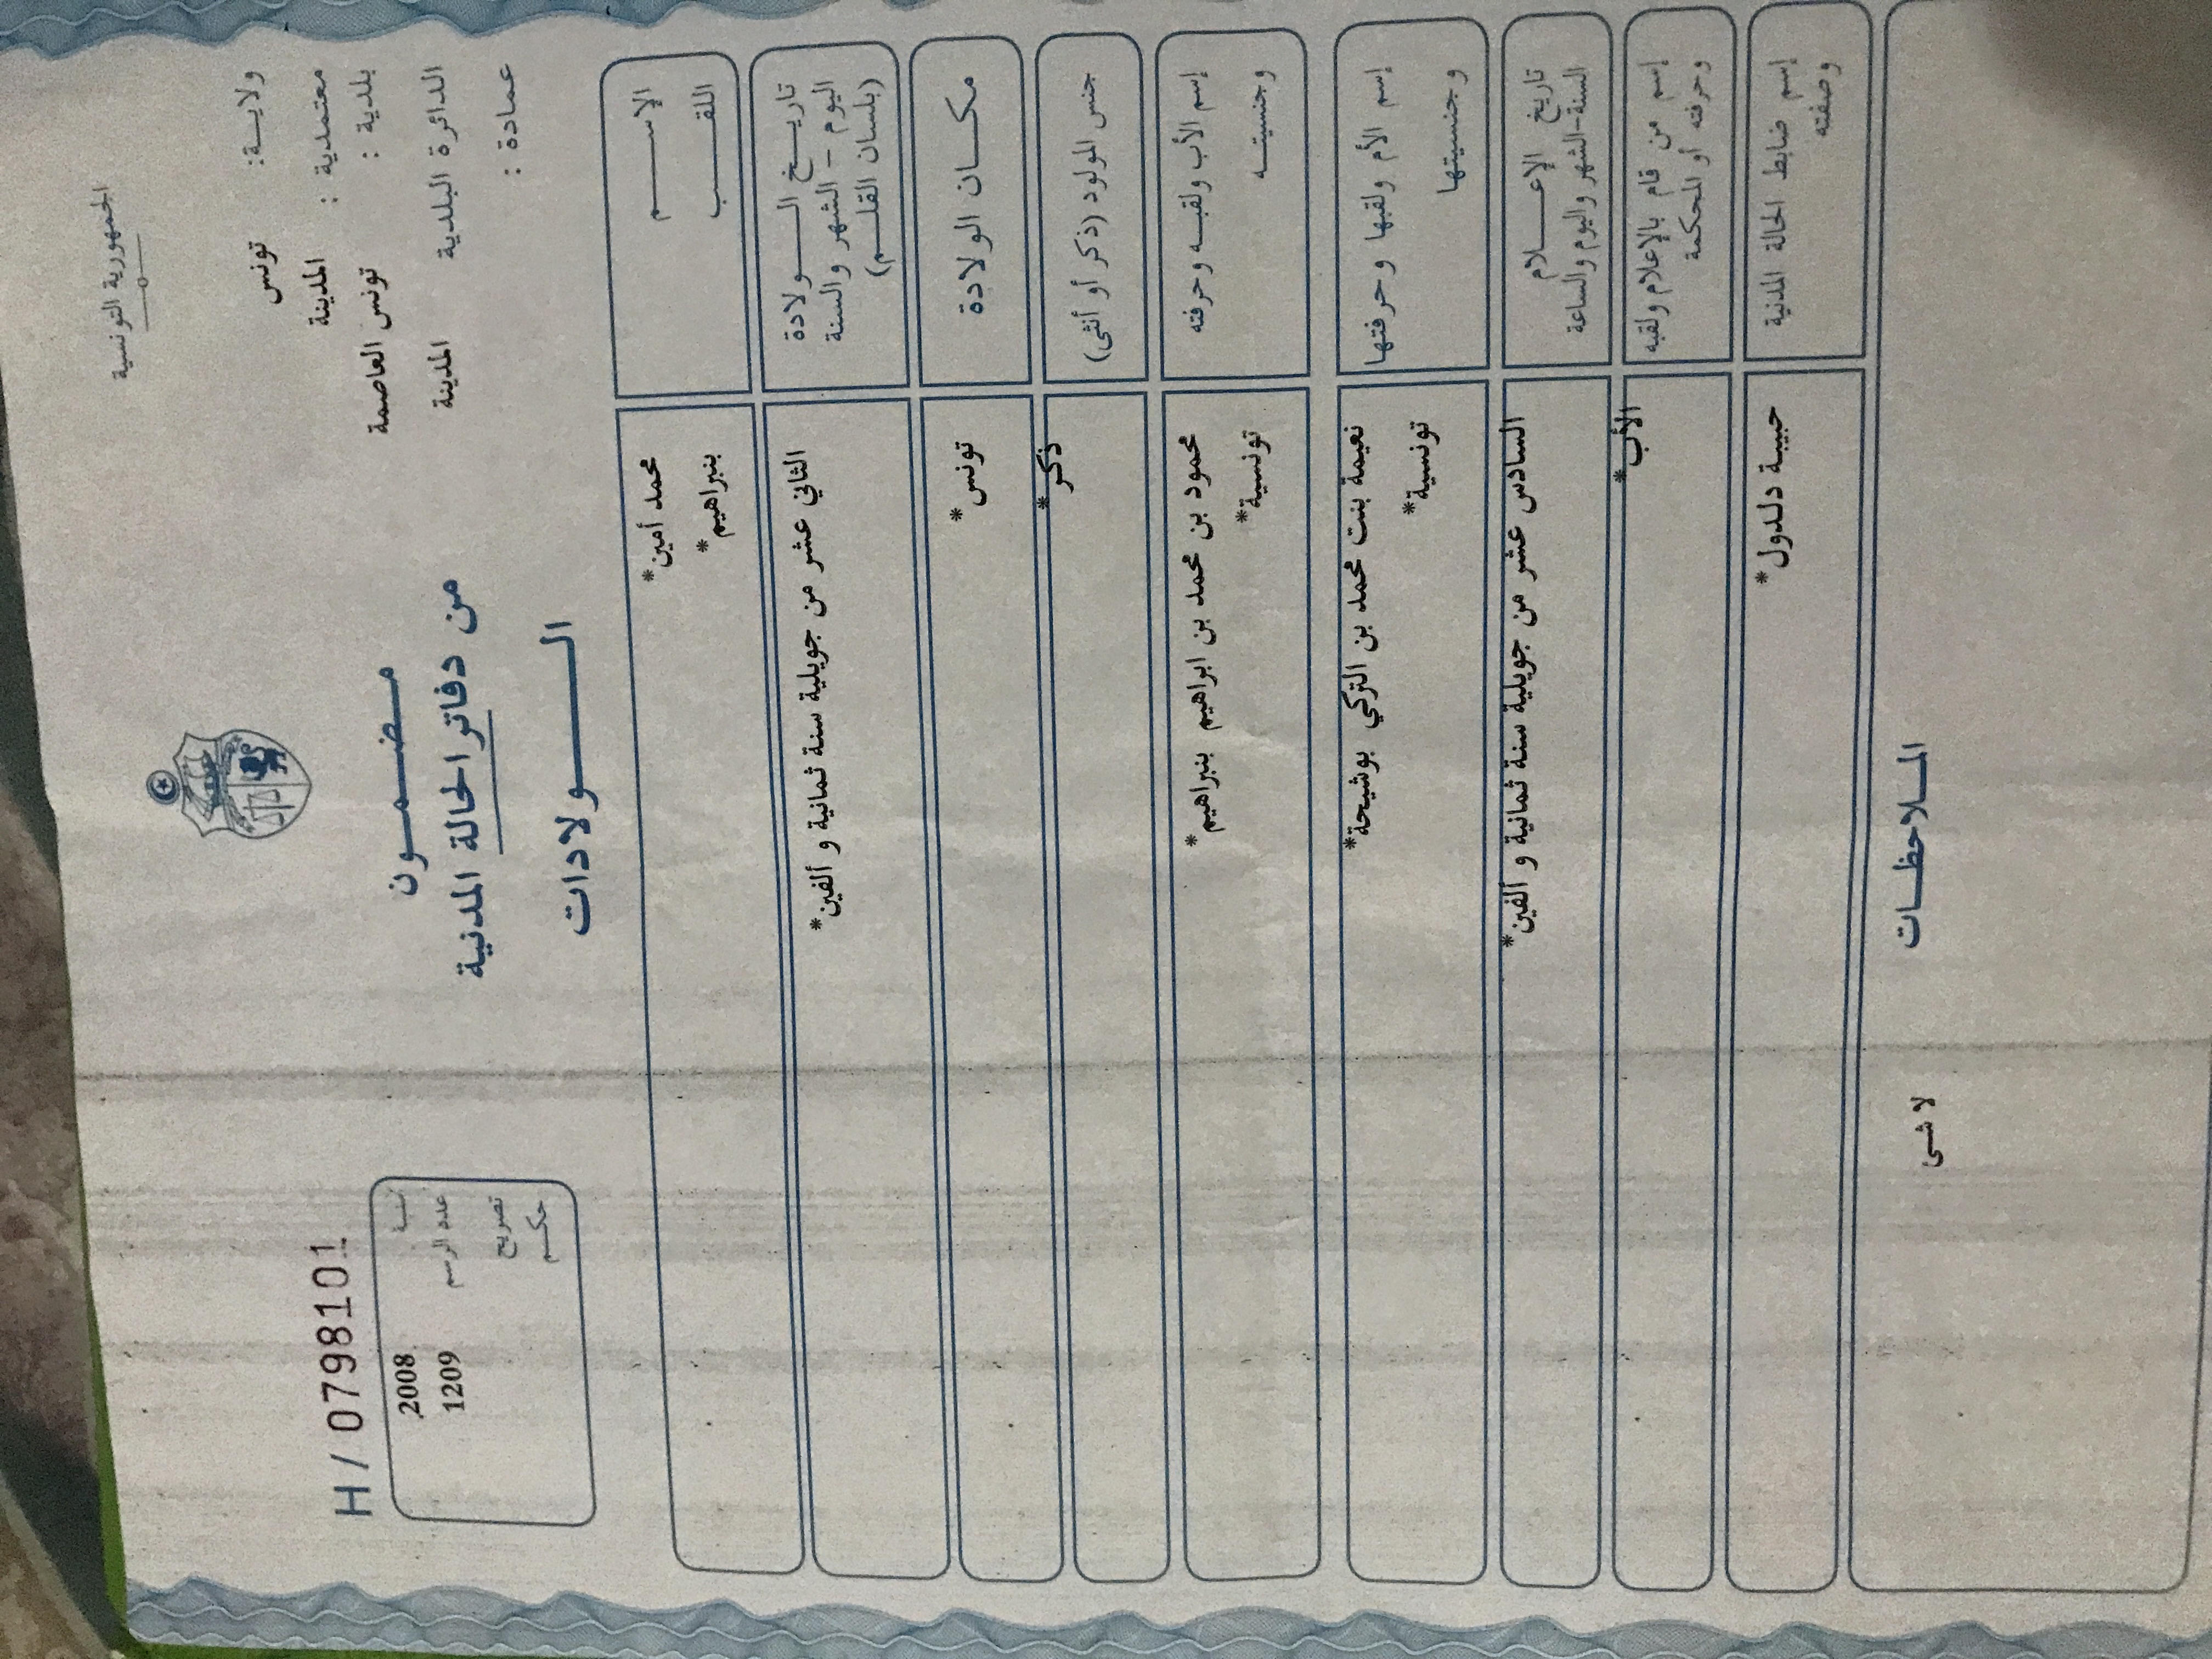 الجمهورية التونسية
ولايـة: تونس
معتمدية : المدينة
بلدية : تونس العاصمة
الدائرة البلدية المدينة
عمادة :
مـضـمـون
من دفاتر الحالة المدنية
الـولادات
H / 0798101
سنـة 2008
عدد الرسم 1209
تصريح
حكـم
الإسـم محمد أمين*
اللقـب بنبراهيم*
تاريـخ الـولادة
اليوم - الشهر والسنة
(بلسان القلـم)
الثاني عشر من جويلية سنة ثمانية و ألفين*
مكـان الولادة تونس*
جنس المولود (ذكر أو أنثى) ذكر*
إسم الأب ولقبـه وحرفته محمود بن محمد بن ابراهيم بنبراهيم*
وجنسيتـه تونسية*
إسم الأم ولقبها وحرفتها نعيمة بنت محمد بن التركي بوشيحة*
وجنسيتها تونسية*
تاريخ الإعـلام
السنة-الشهر واليوم والساعة
السادس عشر من جويلية سنة ثمانية و ألفين*
إسم من قام بالإعلام ولقبه
وحرفته أو المحكمة
الأب*
إسم ضابط الحالة المدنية
وصفته
حبيبة دلدول*
المـلاحظـات
لا شى